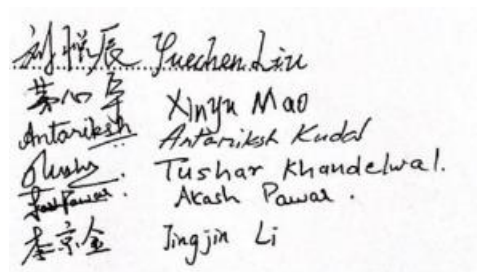 刘悦辰 Yuechen Liu
Xinyu Mao
Antariksh Antariksh Kudal
Tushar Khandelwal.
Akash Pawar.
李京金 Jingjin Li